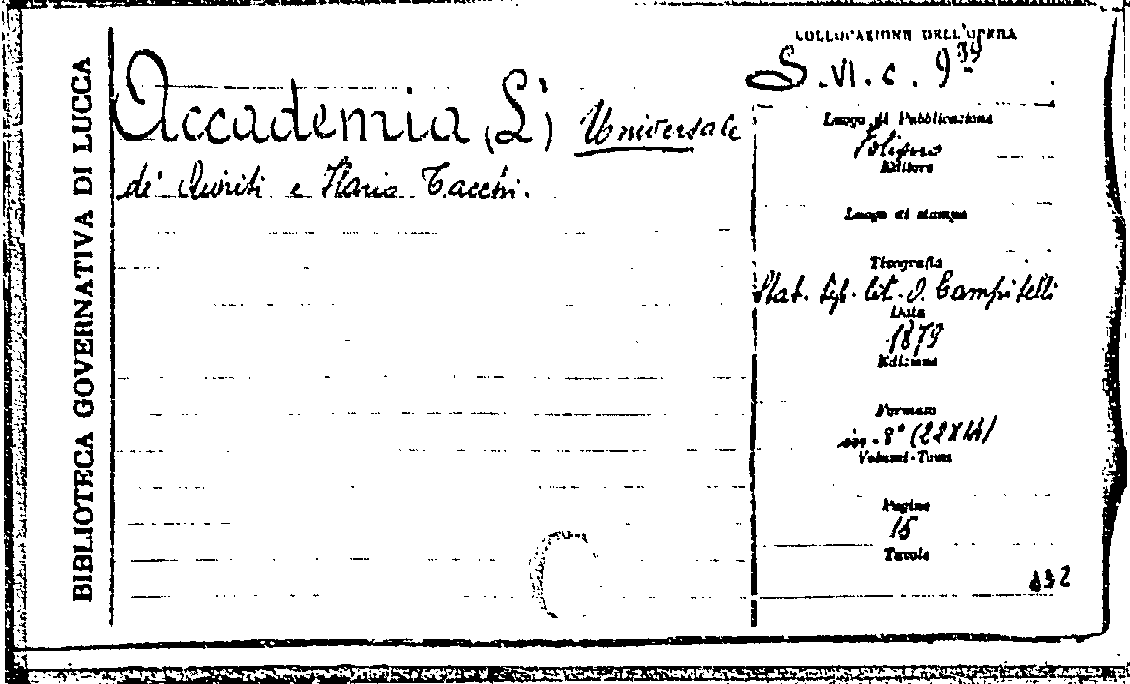 BIBLIOTECA GOVERNATIVA DI LUCCA
Accademia (L') Universale
de' Quiriti e Ilario Tacchi.
COLLOCAZIONE DELL'OPERA
S. VI. c. 9
Luogo di Pubblicazione
Foligno
Editore
Luogo di stampa
Tipografia
Stab. tip. lit. Campitelli
Data
1879
Edizione
Formato
in-8° (22X14)
Volumi-Tomi
Pagine
15
Tavole